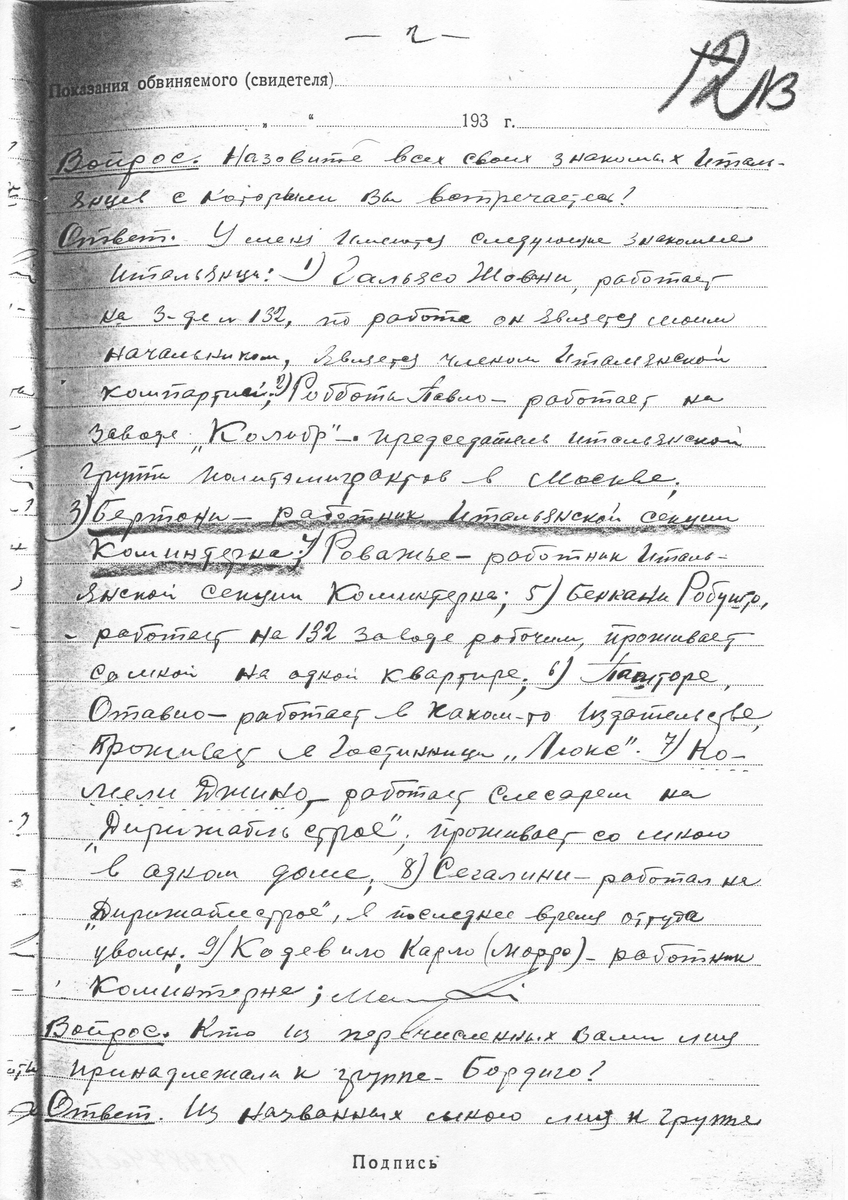 — 2 —
12
Показания обвиняемого (свидетеля)
„ “ 193 г.
Вопрос. Назовите всех своих знакомых Италь-
янцев с которыми Вы встречаетесь?
Ответ. У меня имеются следующие знакомые
Итальянцы: 1) Гальясо Жовни, работает
на З-де № 132, по работе он является моим
начальником, является членом Итальянской
компартии; 2) Робботи Павло – работает на
заводе „Колибр" – председатель итальянской
группы политэмигрантов в Москве;
3) Бертони – работник Итальянской секции
Коминтерна; 4) Роважье – работник Италь-
янской секции Коминтерна; 5) Бенкани Робусто,
– работает на 132 заводе рабочим, проживает
со мной на одной квартире; 6) Пасторе,
Отавио – работает в каком-то Издательстве,
проживает в Гостиннице „Люкс". 7) Ко-
мели Джино, – работает слесарем на
„Дирижабльстрое", проживает со мною
в одном доме, 8) Сегалини – работал на
„Дирижаблестрое", в последнее время оттуда
уволен; 9) Кодевило Карло (Морро) – работник
Коминтерне;
Вопрос. Кто из перечисленных Вами лиц
принадлежали к группе – Бордиго?
Ответ. Из названных мною лиц к группе
Подпись